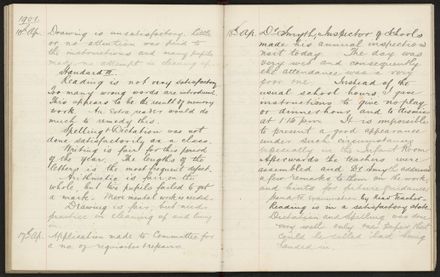 1901.
18th Ap. Drawing is unsatisfactory. Little
or no attention was paid to
the instructions and many pupils
made no attempt in cleaning up.
Standard II.
Reading is not very satisfactory
too many wrong words are introduced.
This appears to be the result of memory
work. An extra reader would do
much to remedy this.
Spelling & Dictation was not
done satisfactorily as a class.
Writing is fair for this period
of the year. The lengths of the
letters is the most frequent defect.
Arithmetic is fair on the
whole, but two pupils failed to get
a mark. More mental work is needed.
Drawing is fair, but needs
practice in cleaning up and lining
in.
19th Ap. Application made to Committee for
a no. of requisites & repairs.
18th Ap. Dr Smyth, Inspector of Schools
made his annual inspection
visit today. The day was
very wet and consequently
the attendance was a very
poor one. Instead of the
usual school hours I gave
instructions to give no play
or dinner hour and to dismiss
at 1.15 pm. It is impossible
to present a good appearance
under such circumstances
especially in the Infant Room.
Afterwards the teachers were
assembled and Dr Smyth
a few remarks to them on the work,
and hints for future guidance
Reading is in a satisfactory state.
Dictation and Spelling was done
very well only one
being
handed in.